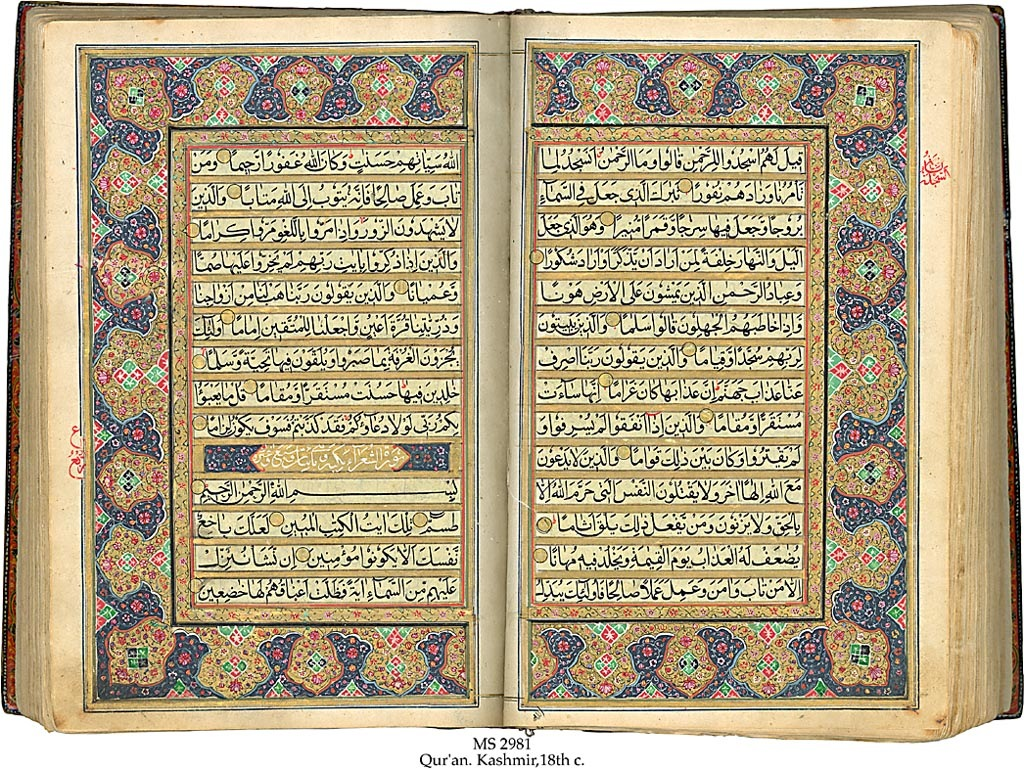 قيل لهم اسجدوا للرحمن قالوا وما الرحمن انسجد لما
تأمرنا وزادهم نفورا تبرك الذي جعل في السماء
بروجا وجعل فيها سرجا وقمرا منيرا وهو الذي جعل
اليل والنهار خلفة لمن اراد ان يذكر او اراد شكورا
وعباد الرحمن الذين يمشون على الارض هونا
واذا خاطبهم الجهلون قالوا سلما والذين يبيتون
لربهم سجدا وقياما والذين يقولون ربنا اصرف
عنا عذاب جهنم ان عذابها كان غراما انها ساءت
مستقرا ومقاما والذين اذا انفقوا لم يسرفوا و
لم يقتروا وكان بين ذلك قواما والذين لا يدعون
مع الله الها اخر ولا يقتلون النفس التي حرم الله الا
بالحق ولا يزنون ومن يفعل ذلك يلق اثاما
يضعف له العذاب يوم القيمة ويخلد فيه مهانا
الا من تاب وامن وعمل عملا صالحا فاولئك يبدل
السجدة
الله سياتهم حسنت وكان الله غفورا رحيما ومن
تاب وعمل صالحا فانه يتوب الى الله متابا والذين
لا يشهدون الزور واذا مروا باللغو مروا كراما
والذين اذا ذكروا بايت ربهم لم يخروا عليها صما
وعميانا والذين يقولون ربنا هب لنا من ازواجنا
وذريتنا قرة اعين واجعلنا للمتقين اماما اولئك
يجزون الغرفة بما صبروا ويلقون فيها تحية وسلما
خلدين فيها حسنت مستقرا ومقاما قل ما يعبوا
بكم ربي لولا دعاؤكم فقد كذبتم فسوف يكون لزاما
سورة الشعراء
بسم الله الرحمن الرحيم
طسم تلك ايت الكتب المبين لعلك باخع
نفسك الا يكونوا مؤمنين ان نشا ننزل
عليهم من السماء اية فظلت اعناقهم لها خضعين
MS 2981
Qur'an. Kashmir,18th c.